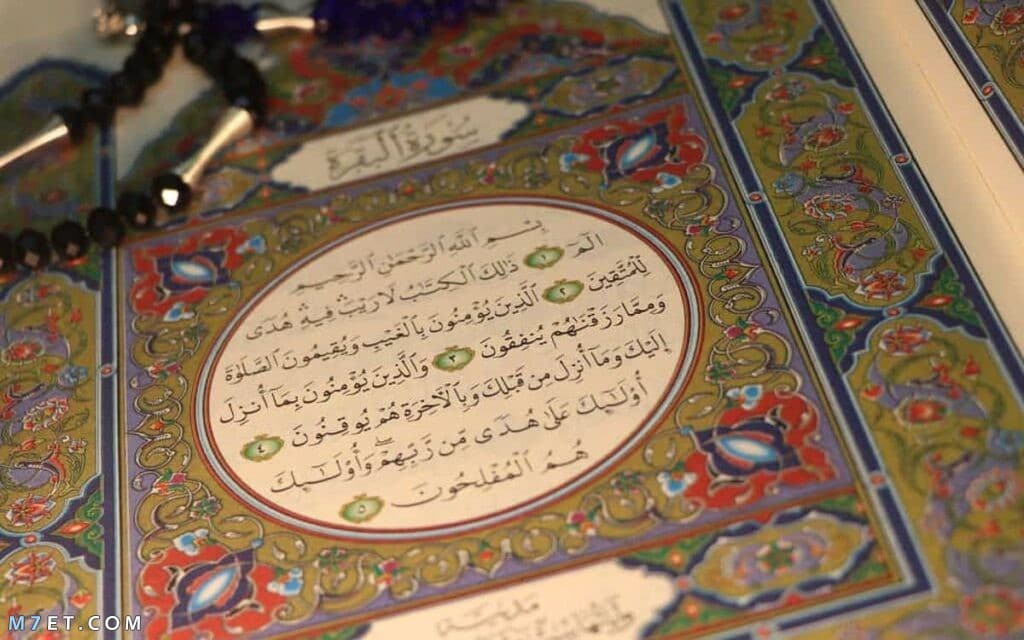 سُورَةُ الْبَقَرَةِ
بِسْمِ اللَّهِ الرَّحْمَٰنِ الرَّحِيمِ
الٓمٓ ١ ذَٰلِكَ الْكِتَٰبُ لَا رَيْبَ فِيهِ هُدًى
لِّلْمُتَّقِينَ ٢ الَّذِينَ يُؤْمِنُونَ بِالْغَيْبِ وَيُقِيمُونَ الصَّلَوٰةَ
وَمِمَّا رَزَقْنَٰهُمْ يُنفِقُونَ ٣ وَالَّذِينَ يُؤْمِنُونَ بِمَآ أُنزِلَ
إِلَيْكَ وَمَآ أُنزِلَ مِن قَبْلِكَ وَبِالْءَاخِرَةِ هُمْ يُوقِنُونَ ٤
أُو۟لَٰٓئِكَ عَلَىٰ هُدًى مِّن رَّبِّهِمْ ۖ وَأُو۟لَٰٓئِكَ
هُمُ الْمُفْلِحُونَ ٥
M7ET.COM